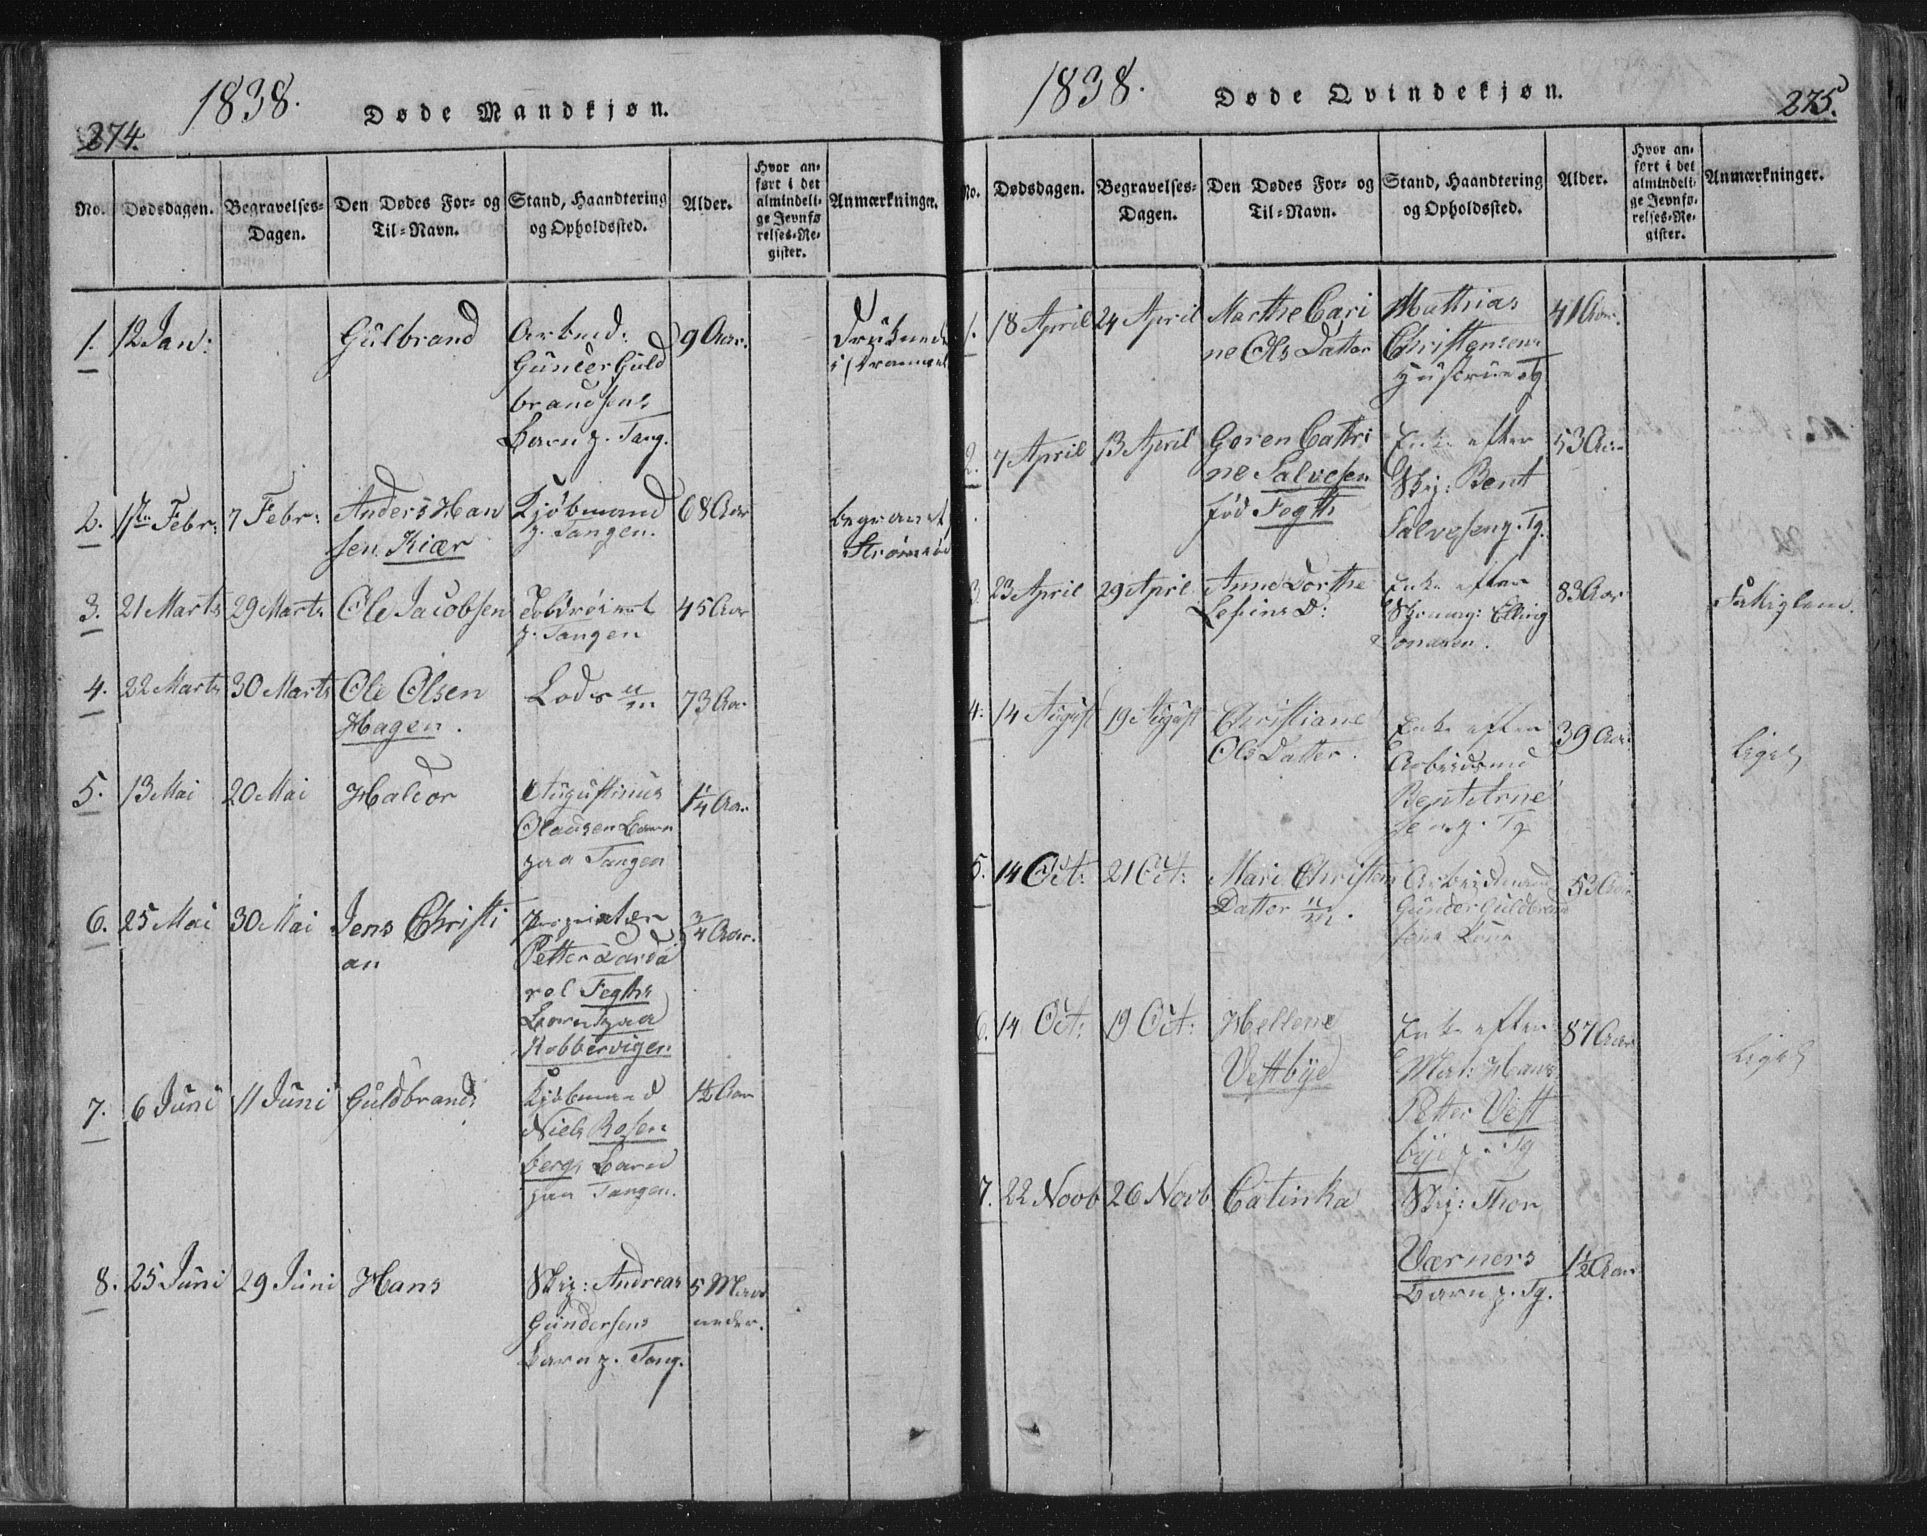 1838.
Døde Mandkjøn.
274.
No.
Dødsdagen.
Begravelses-
Dagen.
Den Dødes For- og
Til-Navn.
Stand, Haandtering
og Opholdssted.
Alder.
Hvor an-
ført i det
almindeli-
ge Jevnfø
relses-Re-
gister.
Anmærkninger.
1. 12 Jan: Gulbrand
Gunder Guld
brandsens
Barn p. Tang.
9 Aar.
2. 1ste Febr: 7 Febr: Anders Han
sen Kiær
Kjøbmand
p. Tangen.
68 Aar
begravet
Strømsøe
3. 21 Marts 29 Marts Ole Jacobsen
p. Tangen
45 Aar
4. 22 Marts 30 Marts Ole Olsen
Hagen.
Lods
73 Aar
5. 13 Mai 20 Mai Haldor
Augustinus
Olausen Barn
paa Tangen
1 1/4 Aar
6. 25 Mai 30 Mai Jens Christi
an
Proprietær
Petter
Fegths
Barn paa
Kobbervigen
3/4 Aar.
7. 6 Juni 11 Juni Guldbrand
Kjøbmand
Niels Rosen
bergs Barn
paa Tangen.
1 1/2 Aar
8. 25 Juni 29 Juni Hans
Skip: Andreas
Gundersens
Barn p. Tang.
5 Maa
neder.
1838.
Døde Qvindekjøn.
275.
No.
Dødsdagen.
Begravelses-
Dagen.
Den Dødes For- og
Til-Navn.
Stand, Haandtering
og Opholdssted.
Alder.
Hvor an-
ført i det
almindeli-
ge Jevnfø-
relses-Re-
gister.
Anmærkninger.
1. 18 April 24 April Marthe Cari
ne Ols Datter
Mathias
Christensens
Hustrue
41 Aar.
2. 7 April 13 April Goren Cathri
ne Salvesen
fød Fegth
Enke efter
Skip: Bent
Salvesen p. Tg.
53 Aar
3. 23 April 29 April Anne Dorthe
Enke efter
Elling
83 Aar
Fattiglem.
4. 14 August 19 August Christiane
Ols Datter.
Enke efter
Arbeidsmd
Bent Arne
sen p. Tg
39 Aar
ligel
5. 14 Oct: 21 Oct: Mari Christens
Datter
Arbeidsmand
Gunder Guldbrand
sens Kone
53 Aar
6. 14 Oct: 19 Oct: Hellene
Vestbye
Enke efter
Hans
Petter Vest
bye p. Tg
87 Aar
ligel
7. 22 Novb 26 Novb Catinka
Skip: Thor
Værners
Barn p. Tg.
1 1/2 Aar